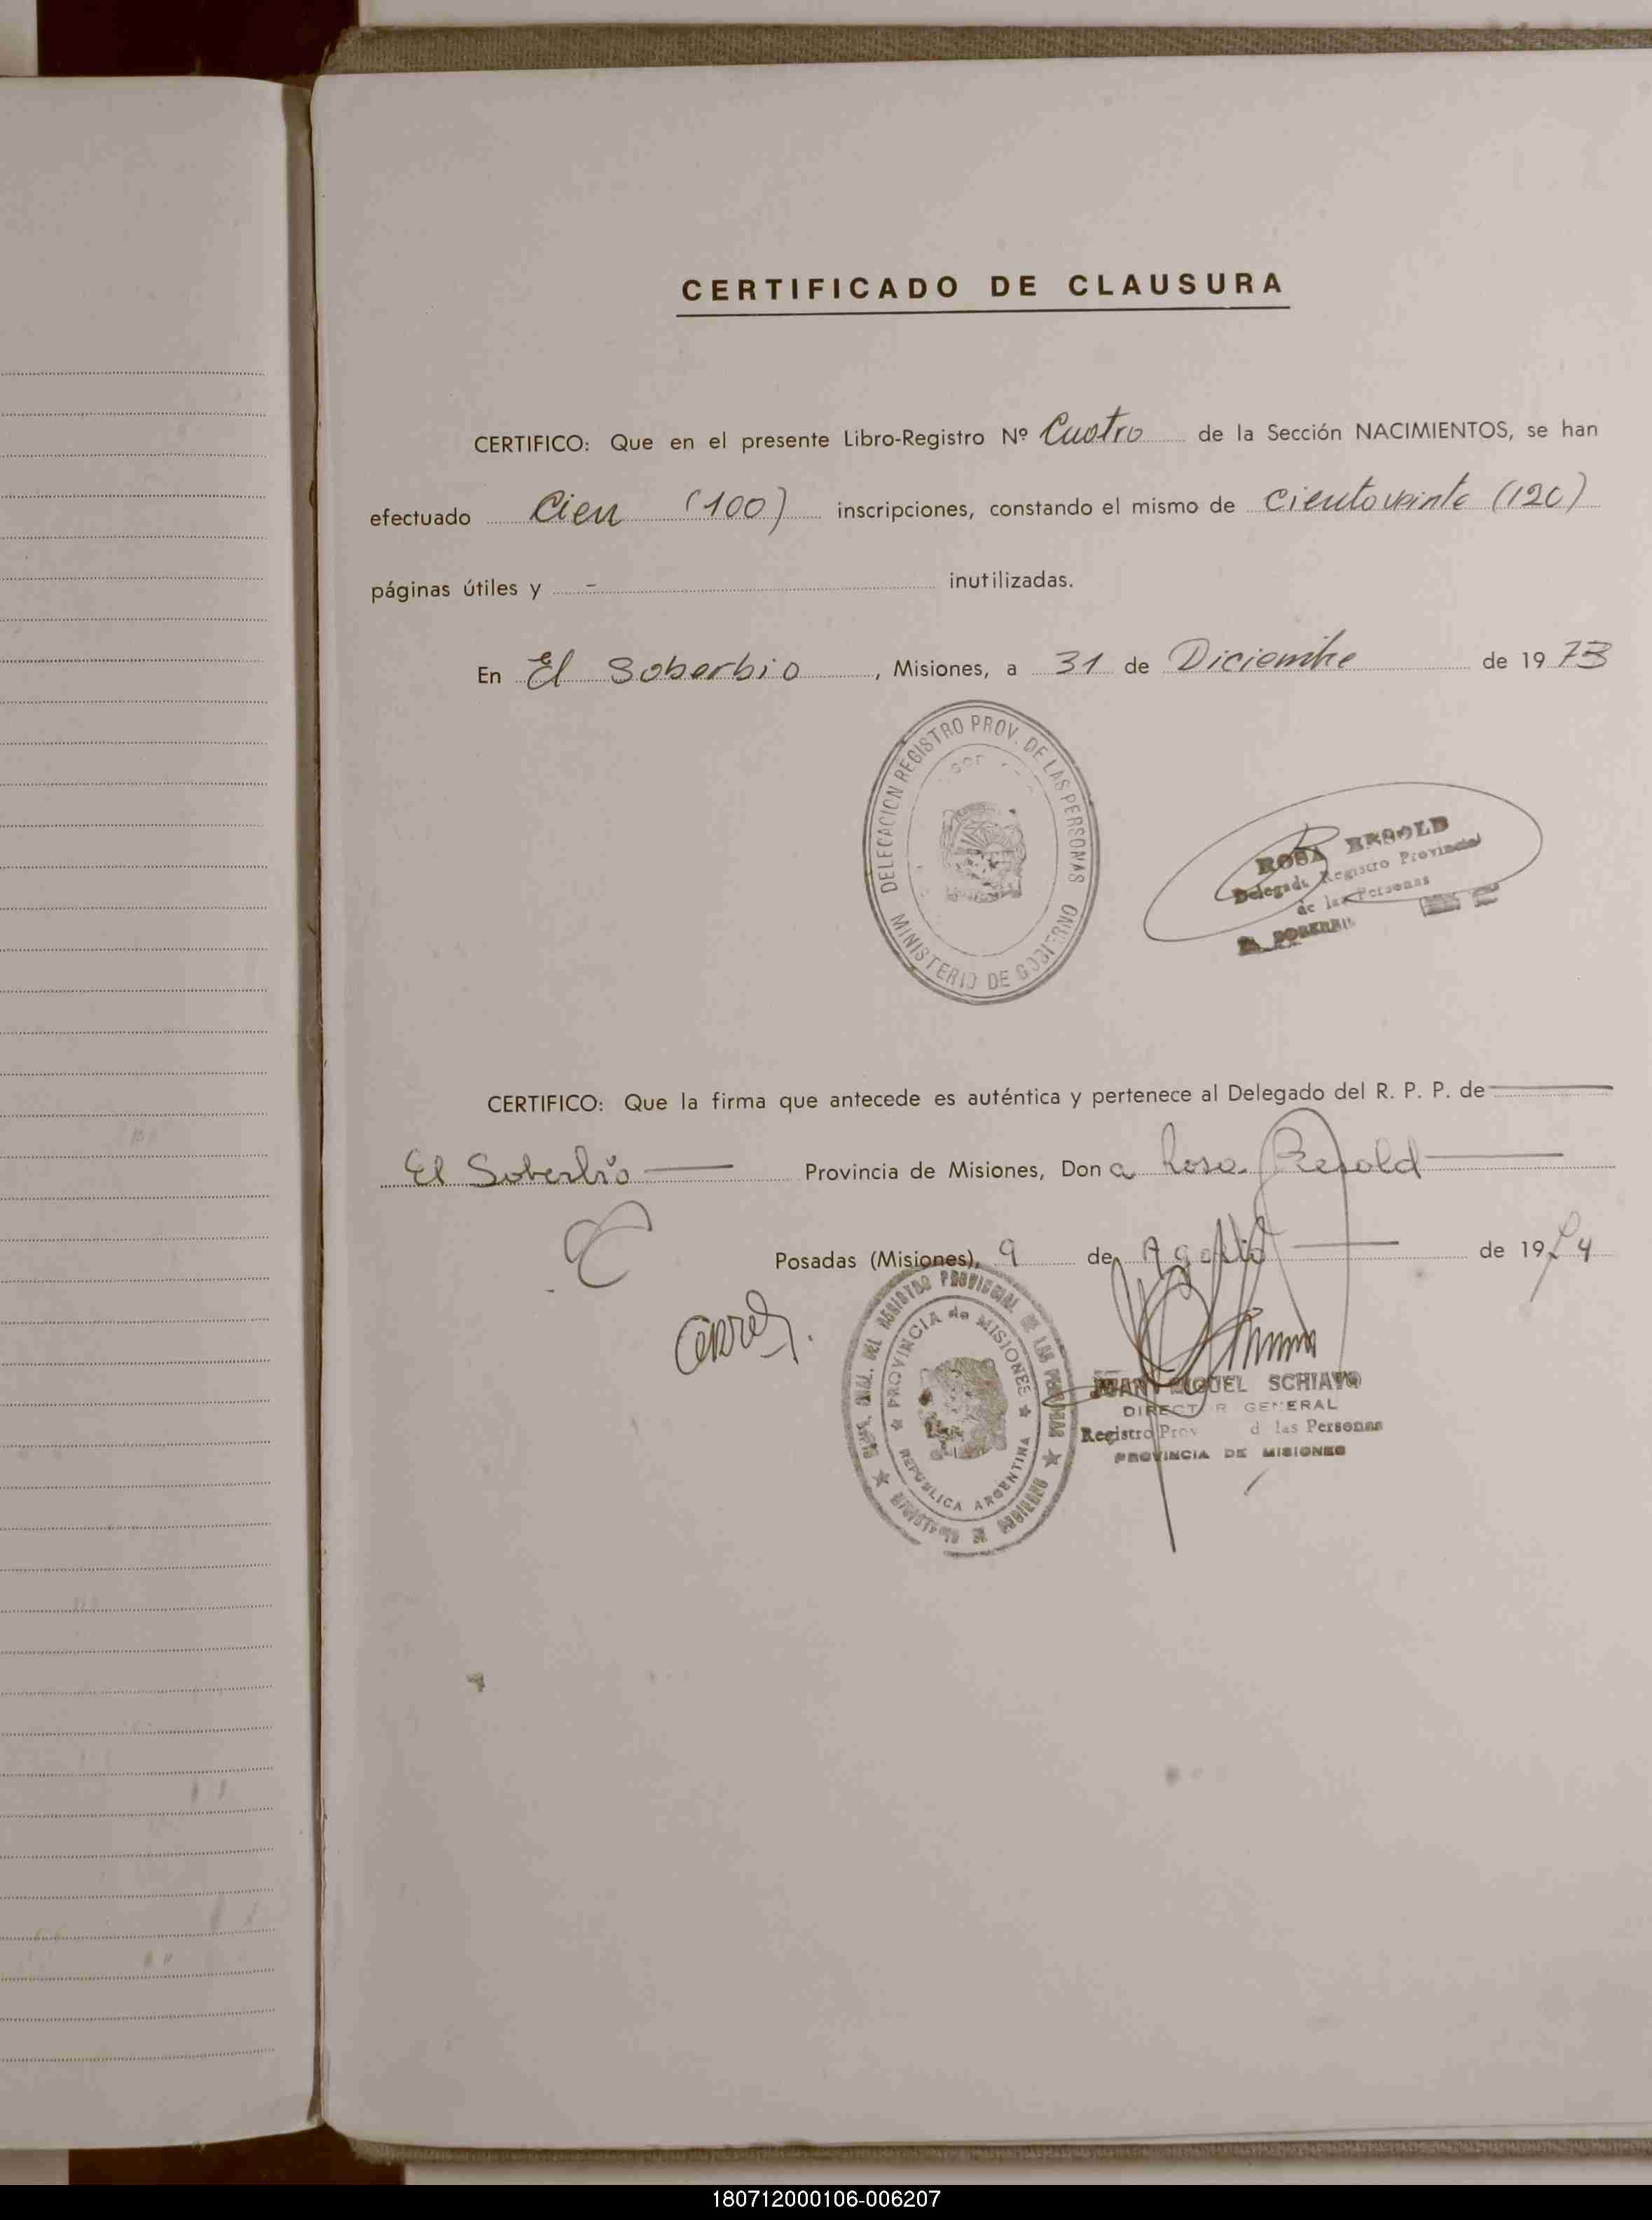 CERTIFICADO DE CLAUSURA
CERTIFICO: Que en el presente Libro-Registro Nº Cuatro de la Sección NACIMIENTOS, se han
efectuado Cien (100) inscripciones, constando el mismo de ciento veinte (120)
páginas útiles y - inutilizadas.
En El Soberbio, Misiones, a 31 de Diciembre de 1973
DELEGACION REGISTRO PROV. DE LAS PERSONAS
MINISTERIO DE GOBIERNO
ROSA
Delegada Registro Provincial
de las Personas
EL SOBERBIO
CERTIFICO: Que la firma que antecede es auténtica y pertenece al Delegado del R. P. P. de
El Soberbio Provincia de Misiones, Don a Rosa
Posadas (Misiones), 9 de Agosto de 1974
REGISTRO PROVINCIAL DE LAS PERSONAS
MINISTERIO DE GOBIERNO
PROVINCIA de MISIONES
REPUBLICA ARGENTINA
JUAN MIGUEL SCHIAVO
DIRECT R GENERAL
Registro Prov d las Personas
PROVINCIA DE MISIONES
180712000106-006207